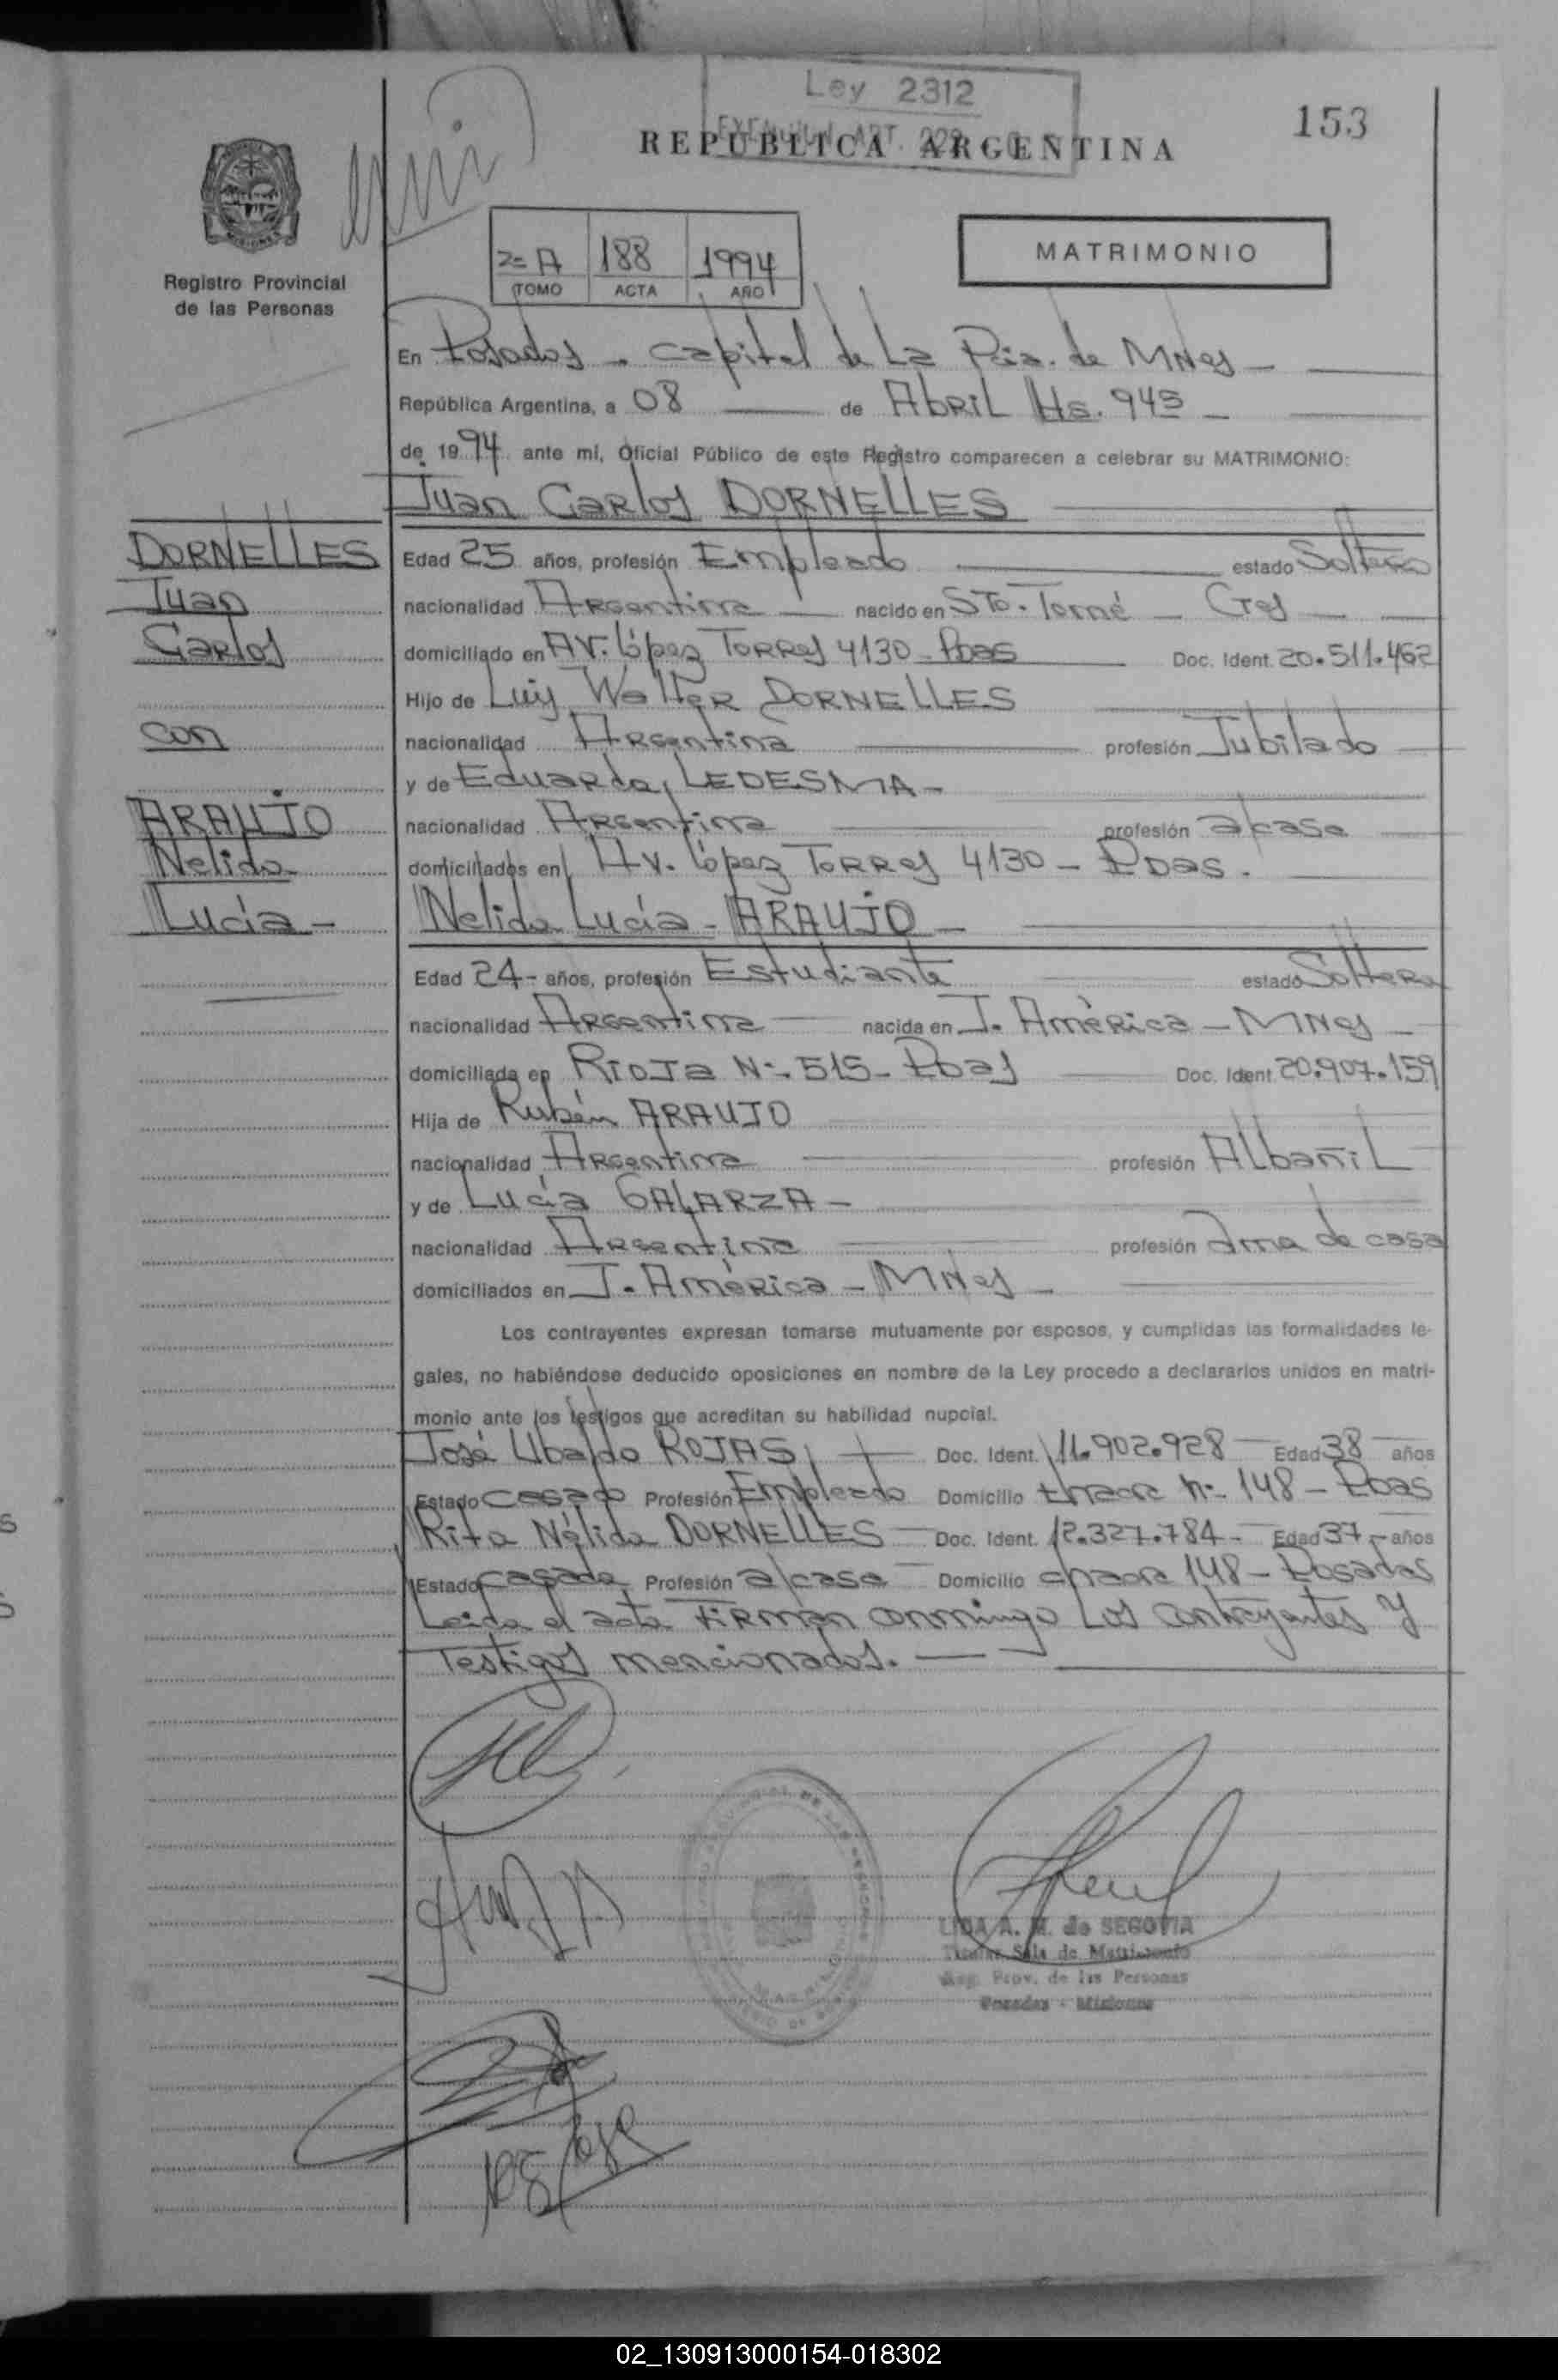 Ley 2312
153
REPUBLICA ARGENTINA
MISIONES
Registro Provincial
de las Personas
2= A 188 1994
TOMO ACTA AÑO
MATRIMONIO
En Posadas - capital de La Pcia. de MNes -
República Argentina, a 08 de Abril Hs. 945 -
de 1994 ante mí, Oficial Público de este Registro comparecen a celebrar su MATRIMONIO:
Juan Carlos DORNELLES
DORNELLES
Juan
Carlos
con
ARAUJO
Nelida
Lucia -
Edad 25 años, profesión Empleado estado Soltero
nacionalidad Argentina nacido en Sto. Tomé - Ctes
domiciliado en AV. López Torres 4130 - Pdas Doc. Ident. 20.511.462
Hijo de Luis Walter DORNELLES
nacionalidad Argentina profesión Jubilado
y de Eduarda, LEDESMA -
nacionalidad Argentina profesión a/casa
domiciliados en AV. López Torres 4130 - Pdas.
Nelida Lucía - ARAUJO -
Edad 24 - años, profesión Estudiante estado Soltera
nacionalidad Argentina nacida en J. América - MNes -
domiciliada en Rioja Nº 515 - Pdas Doc. Ident. 20.907.159
Hija de Rubén ARAUJO
nacionalidad Argentina profesión Albañil
y de Lucía GALARZA -
nacionalidad Argentina profesión ama de casa
domiciliados en J. América - MNes -
Los contrayentes expresan tomarse mutuamente por esposos, y cumplidas las formalidades le-
gales, no habiéndose deducido oposiciones en nombre de la Ley procedo a declararlos unidos en matri-
monio ante los testigos que acreditan su habilidad nupcial.
José Ubaldo ROJAS, Doc. Ident. 11.902.928 Edad 38 años
Estado casado Profesión Empleado Domicilio chacra nº 148 - Pdas
Rita Nélida DORNELLES Doc. Ident. 12.327.784 - Edad 37 - años
Estado casada Profesión a/casa Domicilio chacra 148 - Posadas
Leida el acta firman conmigo Los contrayentes y
Testigos mencionados.
LIDA A. M. de SEGOVIA
Titular Sala de Matrimonio
Reg. Prov. de las Personas
Posadas - Misiones
02_130913000154-018302